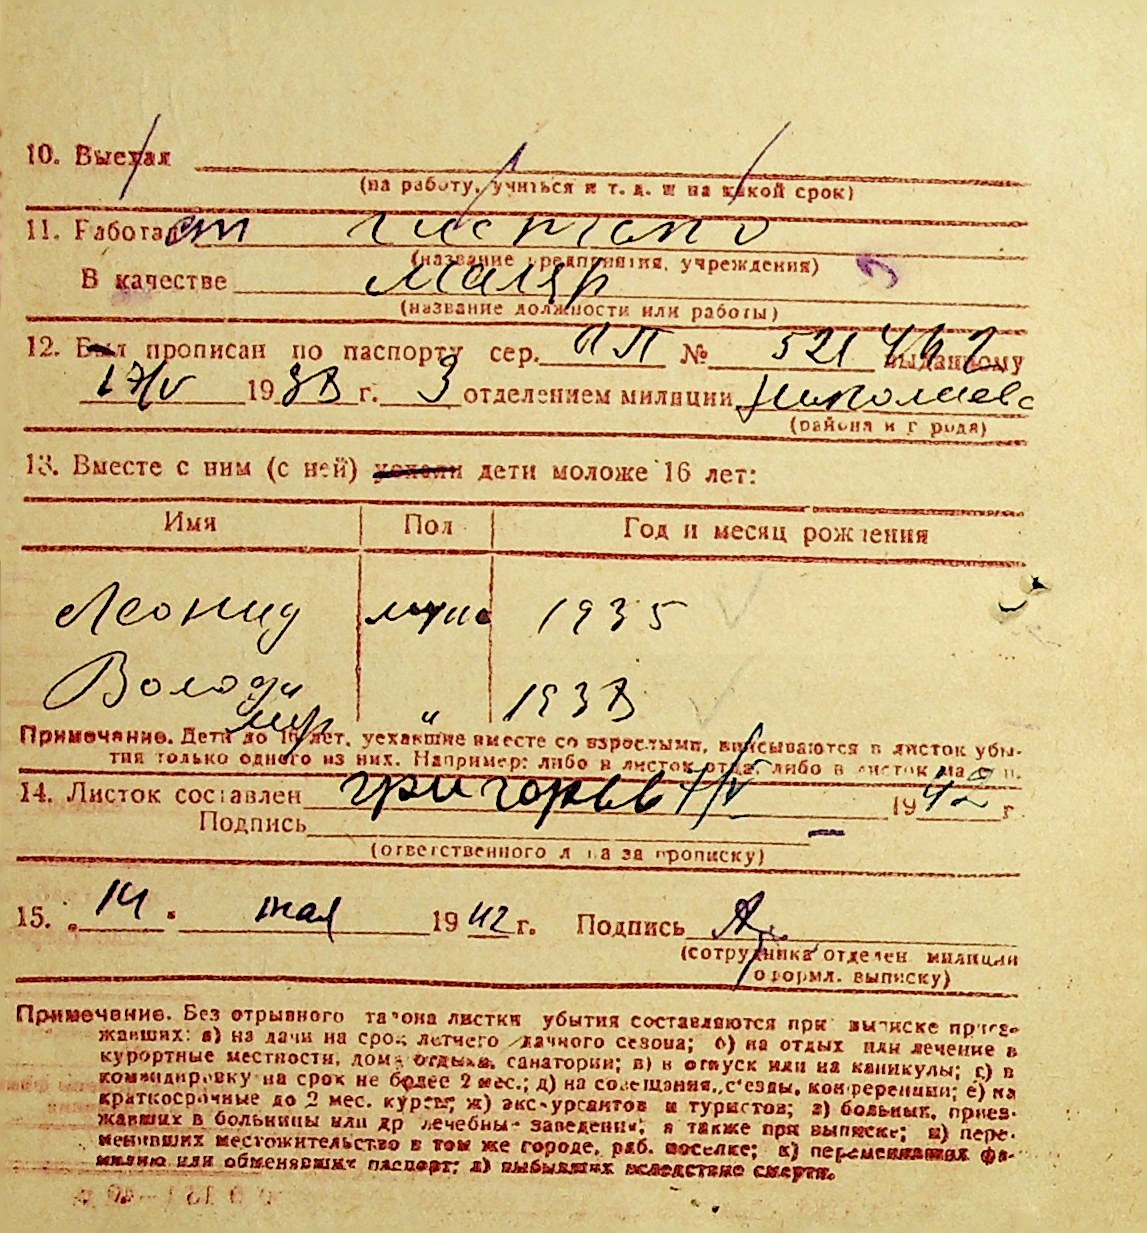 10. Выехал
(на работу, учиться и т. д. и на какой срок)
11. Работа
(название предприятия, учреждения)
В качестве маляр
(название должности или работы)
12. Был прописан по паспорту сер. ПП № 521 выданному
17/IV 1938 г. 3 отделением милиции Николаевс
(района и г рода)
13. Вместе с ним (с ней) уехали дети моложе 16 лет:
Имя Пол Год и месяц рождения
Леонид муж 1935
Володи
мир " 1938
Примечание. Дети до 16 лет, уехавшие вместе со взрослыми, вписываются в листок убы-
тия только одного из них. Например: либо в листок отца, либо в листок матери.
14. Листок составлен григорьев 7/V 1942 г
Подпись
(ответственного лица за прописку)
15. „14 " мая 1942 г. Подпись
(сотрудника отделен. милиции
оформл. выписку)
Примечание. Без отрывного талона листки убытия составляются при выписке приез-
жавших: а) на дачи на срок летнего дачного сезона; б) на отдых или лечение в
курортные местности, дома отдыха, санатории; в) в отпуск или на каникулы; г) в
командировку на срок не более 2 мес.; д) на совещания, с'езды, конференции; е) на
краткосрочные до 2 мес. курсы; ж) экскурсантов и туристов; з) больных, приез-
жавших в больницы или др лечебные заведения; а также при выписке; и) пере-
менивших местожительство в том же городе, раб. поселке; к) переменивших фа-
милию или обменявших паспорт; л) выбывших вследствие смерти.